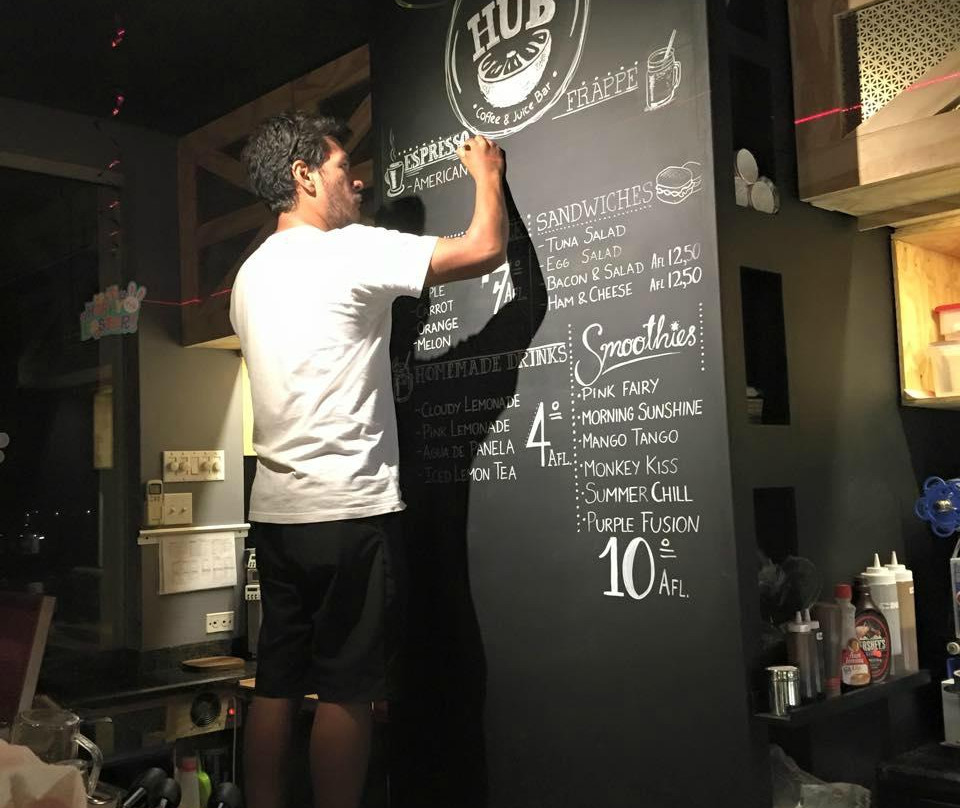 HUB
Coffee & Juice Bar
FRAPPÉ
ESPRESSO
-AMERICAN
SANDWICHES
-TUNA SALAD
-EGG SALAD
BACON & SALAD AFL 12,50
HAM & CHEESE AFL 12,50
7 AFL
PLE
CARROT
ORANGE
-MELON
HOMEMADE DRINKS
-CLOUDY LEMONADE
-PINK LEMONADE
-AGUA DE PANELA
-ICED LEMON TEA
4 AFL.
Smoothies
-PINK FAIRY
-MORNING SUNSHINE
-MANGO TANGO
-MONKEY KISS
-SUMMER CHILL
-PURPLE FUSION
10 AFL.
HERSHEY'S